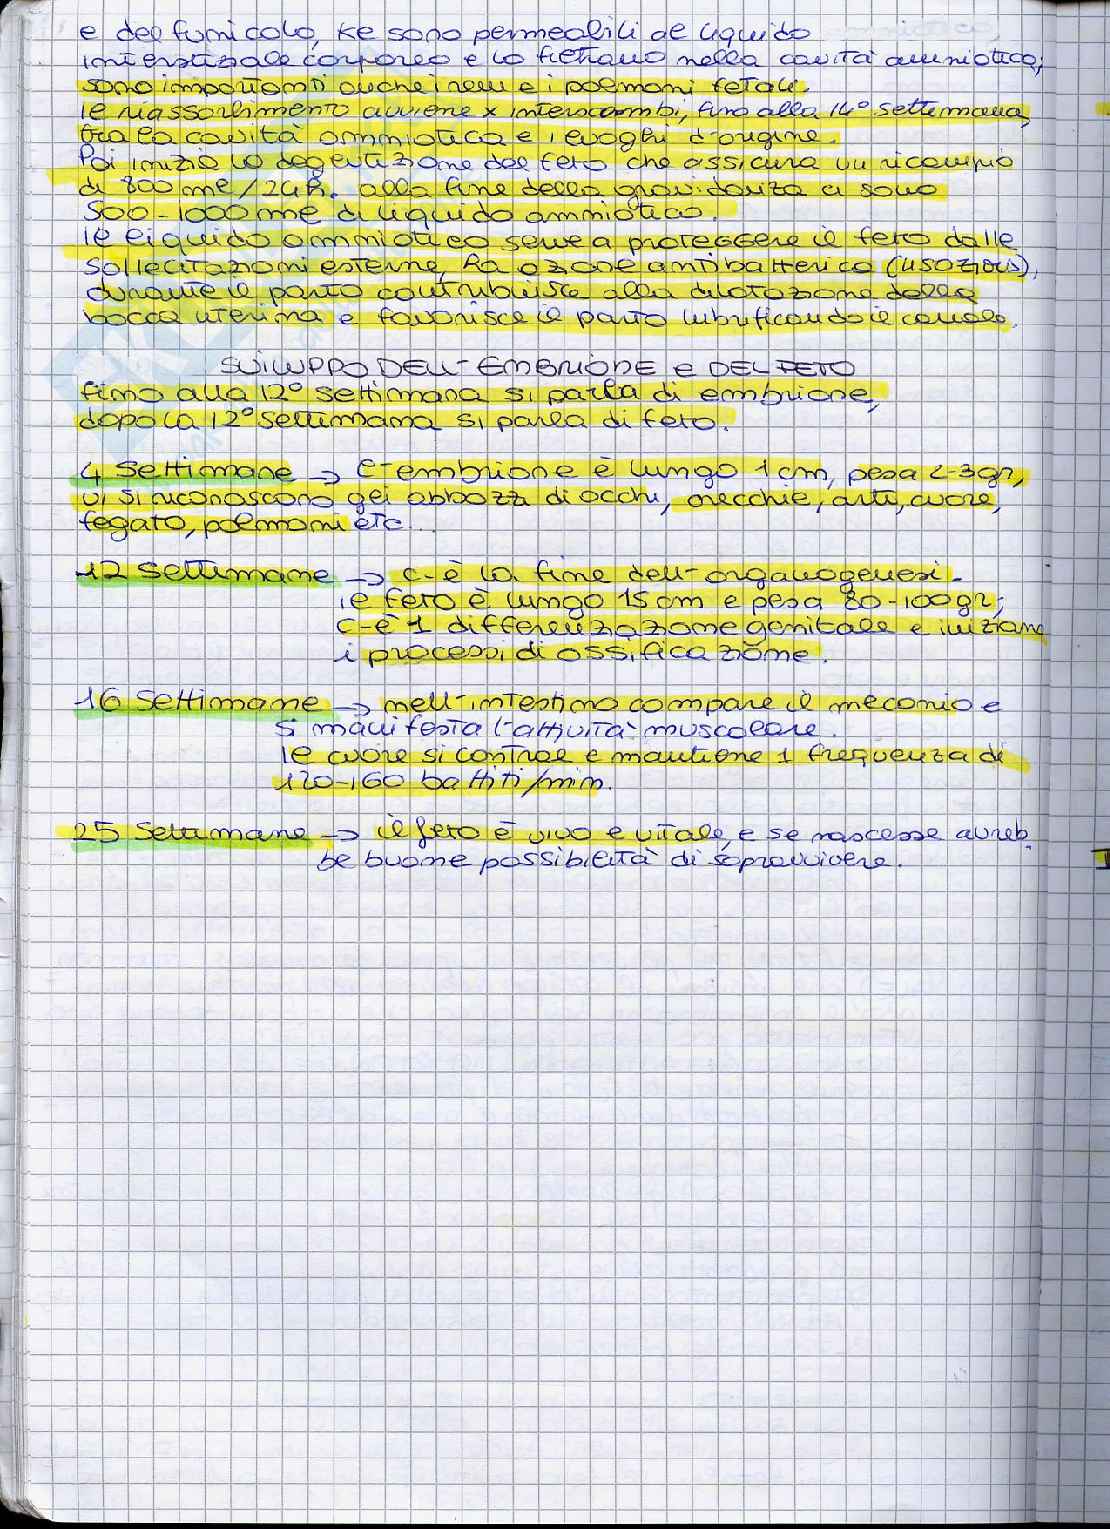 e del funicolo, ke sono permeabili al liquido
interstiziale corporeo e lo filtrano nella cavità amniotica,
sono importanti anche i reni e i polmoni fetali.
Il riassorbimento avviene x interscambi, fino alla 14° settimana,
fra la cavità ammiotica e i luoghi d'origine.
Poi inizia la deglutizione del feto che assicura un ricambio
di 800 ml/24h. alla fine della gravidanza ci sono
500-1000 ml di liquido ammiotico.
Il liquido ammiotico serve a proteggere il feto dalle
sollecitazioni esterne, ha azione antibatterica (lisozious),
durante il parto contribuisce alla dilatazione della
bocca uterina e favorisce il parto lubrificando il canale.
SVILUPPO DELL'EMBRIONE e DEL FETO
fino alla 12° settimana si parla di embrione,
dopo la 12° settimana si parla di feto.
4 settimane → l'embrione è lungo 1 cm, pesa 2-3gr,
vi si riconoscono gli abbozzi di occhi, orecchie, arti, cuore,
fegato, polmoni etc...
12 settimane → c'è la fine dell'organogenesi.
Il feto è lungo 15 cm e pesa 80-100gr;
c'è 1 differenziazione genitale e iniziano
i processi di ossificazione.
16 settimane → nell'intestino compare il meconio e
si manifesta l'attività muscolare.
Il cuore si contrae e mantiene 1 frequenza di
120-160 battiti/min.
25 settimane → il feto è vivo e vitale, e se nascesse avreb
be buone possibilità di sopravvivere.